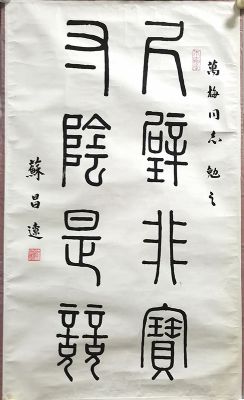 萬梅同志 勉之
尺璧非寶
寸陰是競
蘇昌遼